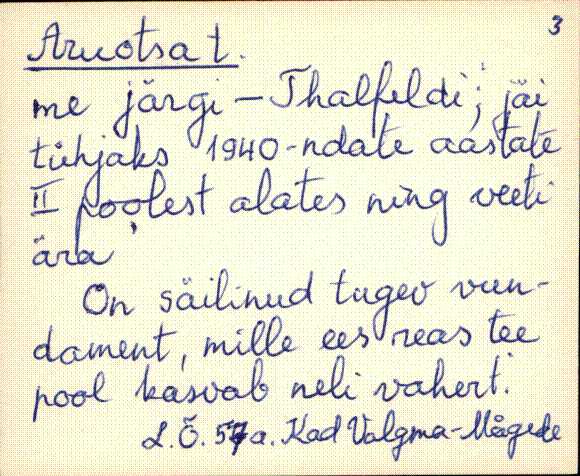 3
Aruotsa t.
me järgi – Thalfeldi; jäi
tühjaks 1940-ndate aastate
II poolest alates ning veeti
ära
On säilinud tugev vun-
dament, mille ees reas tee
pool kasvab neli vahert.
L.Õ. 57a. Kad Valgma-Mägede